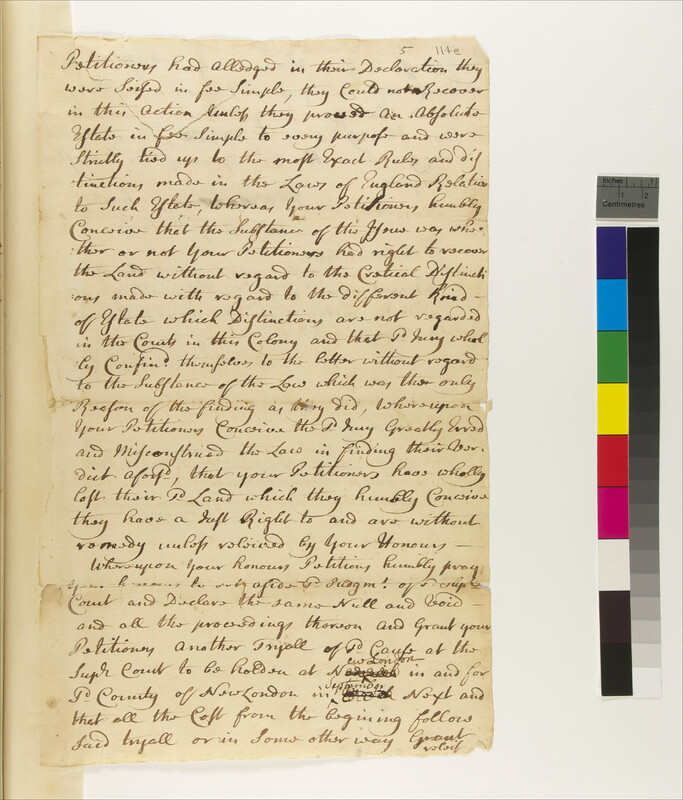 5 114e
Petitioners had alledged in their Declaration they
were Seised in fee Simple, they Could not Recover
in this Action unless they proved an Absolute
Estate in fee Simple to every purpose and were
Strictly tied up to the most Exact Rules and dis
tinctions made in the Laws of England Relative
to Such Estate, whereas Your Petitioners humbly
Conceive that the Substance of the Issue was whe-
ther or not Your Petitioners had right to recover
the Land without regard to the Critical Distincti
ons made with regard to the different Kind -
of Estate which Distinctions are not regarded
in the Courts in this Colony and that sd Jury whol
ly Confind themselves to the letter without regard
to the Substance of the Law which was the only
Reason of the finding as they did, whereupon
Your Petitioners Conceive the sd Jury Greatly Erred
and Misconstrued the Law in finding their Ver-
dict aforsd, that your Petitioners have wholly
lost their sd Land which they humbly Conceive
they have a Just Right to and are without
remedy unless releived by Your Honours -
Whereupon Your honours Petitions humbly pray
Your honours to set aside sd Judgmt. of sd Supr
Court and Declare the same Null and Void -
and all the proceedings thereon and Grant your
Petitioners another Tryall of sd Cause at the
ew London
Supr Court to be holden at N in and for
September
sd County of New London in Next and
that all the Cost from the begining follow
said tryall or in Some other way Grant
releif
Inches 1
1 2
Centimetres